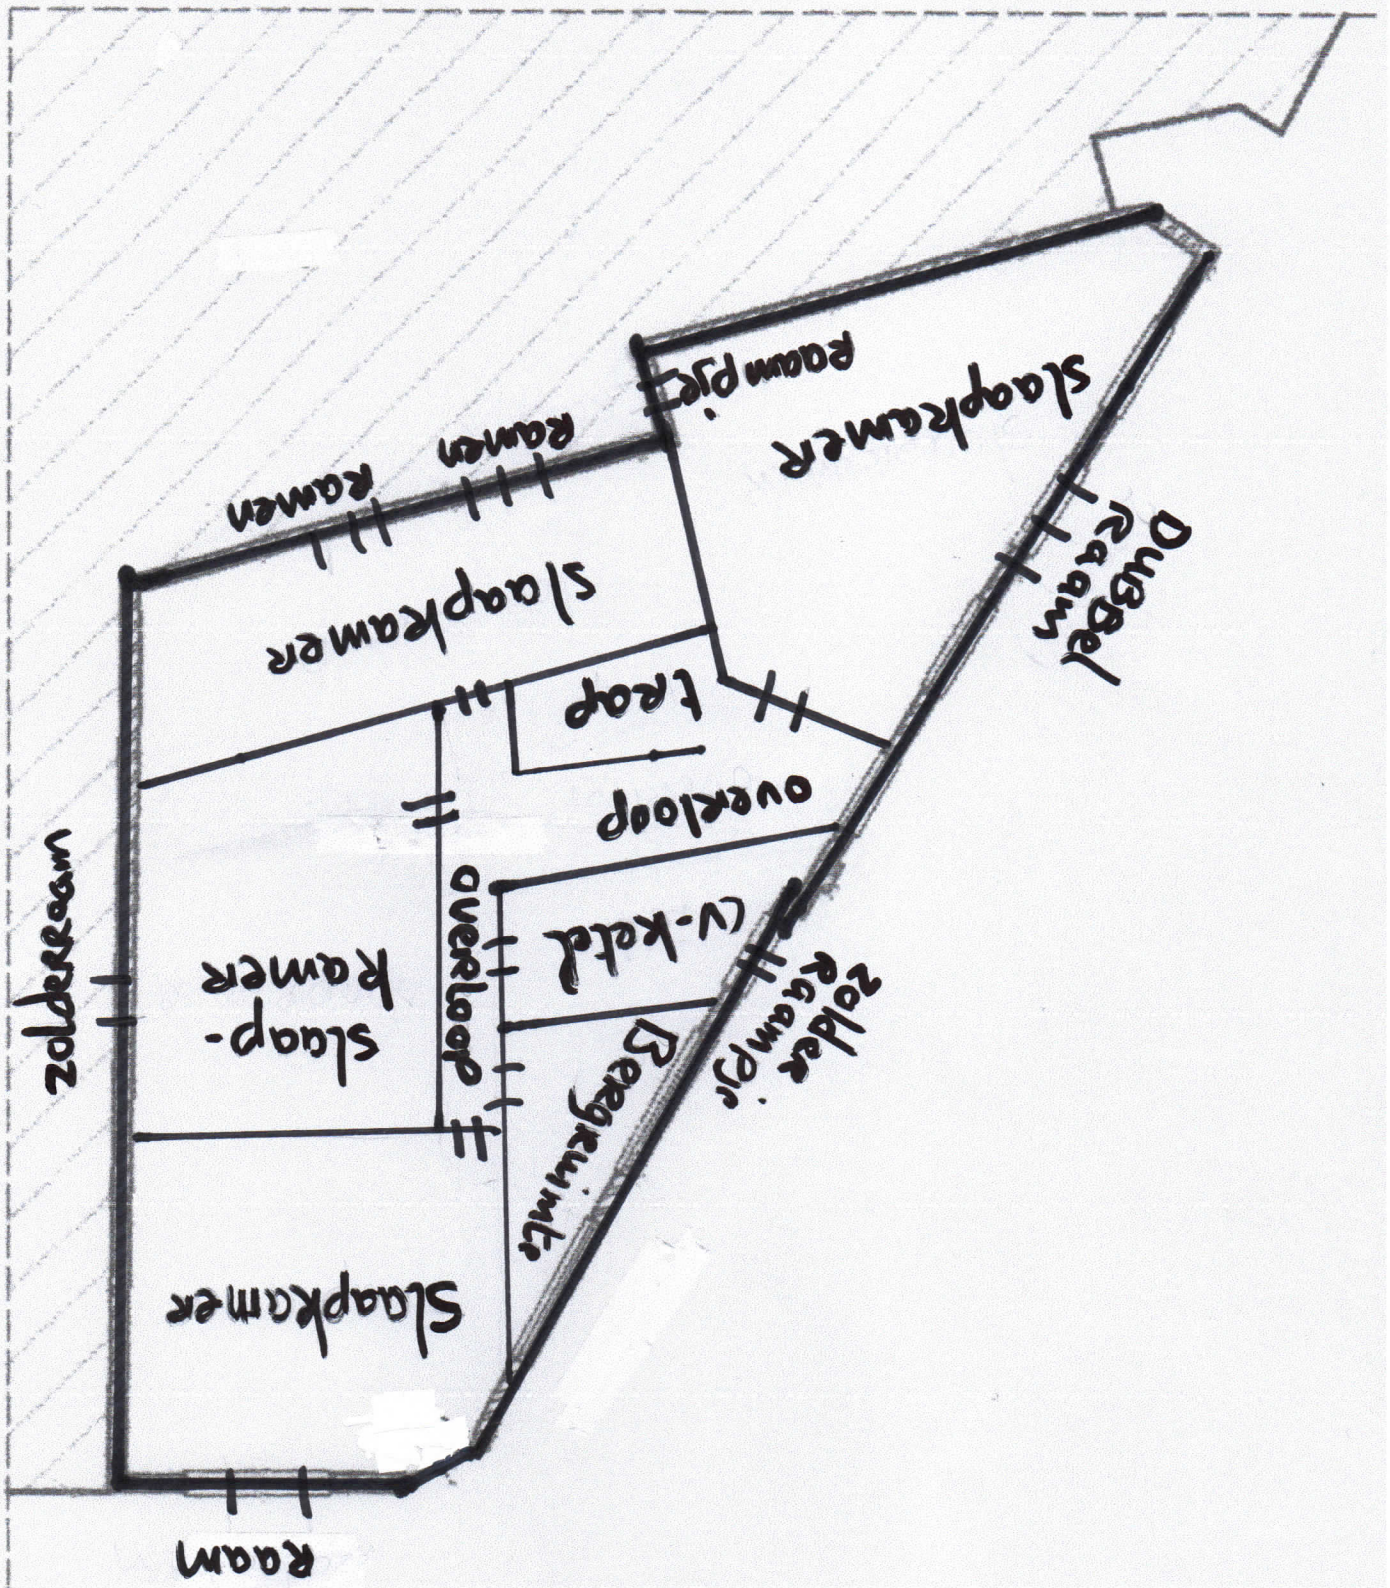 Raampje
slaapkamer
Ramen
Ramen
slaapkamer
Dubbel
Raam
trap
overloop
zolderraam
slaap-
kamer
overloop
CV-ketel
zolder
Raampje
Bergruimte
Slaapkamer
Raam